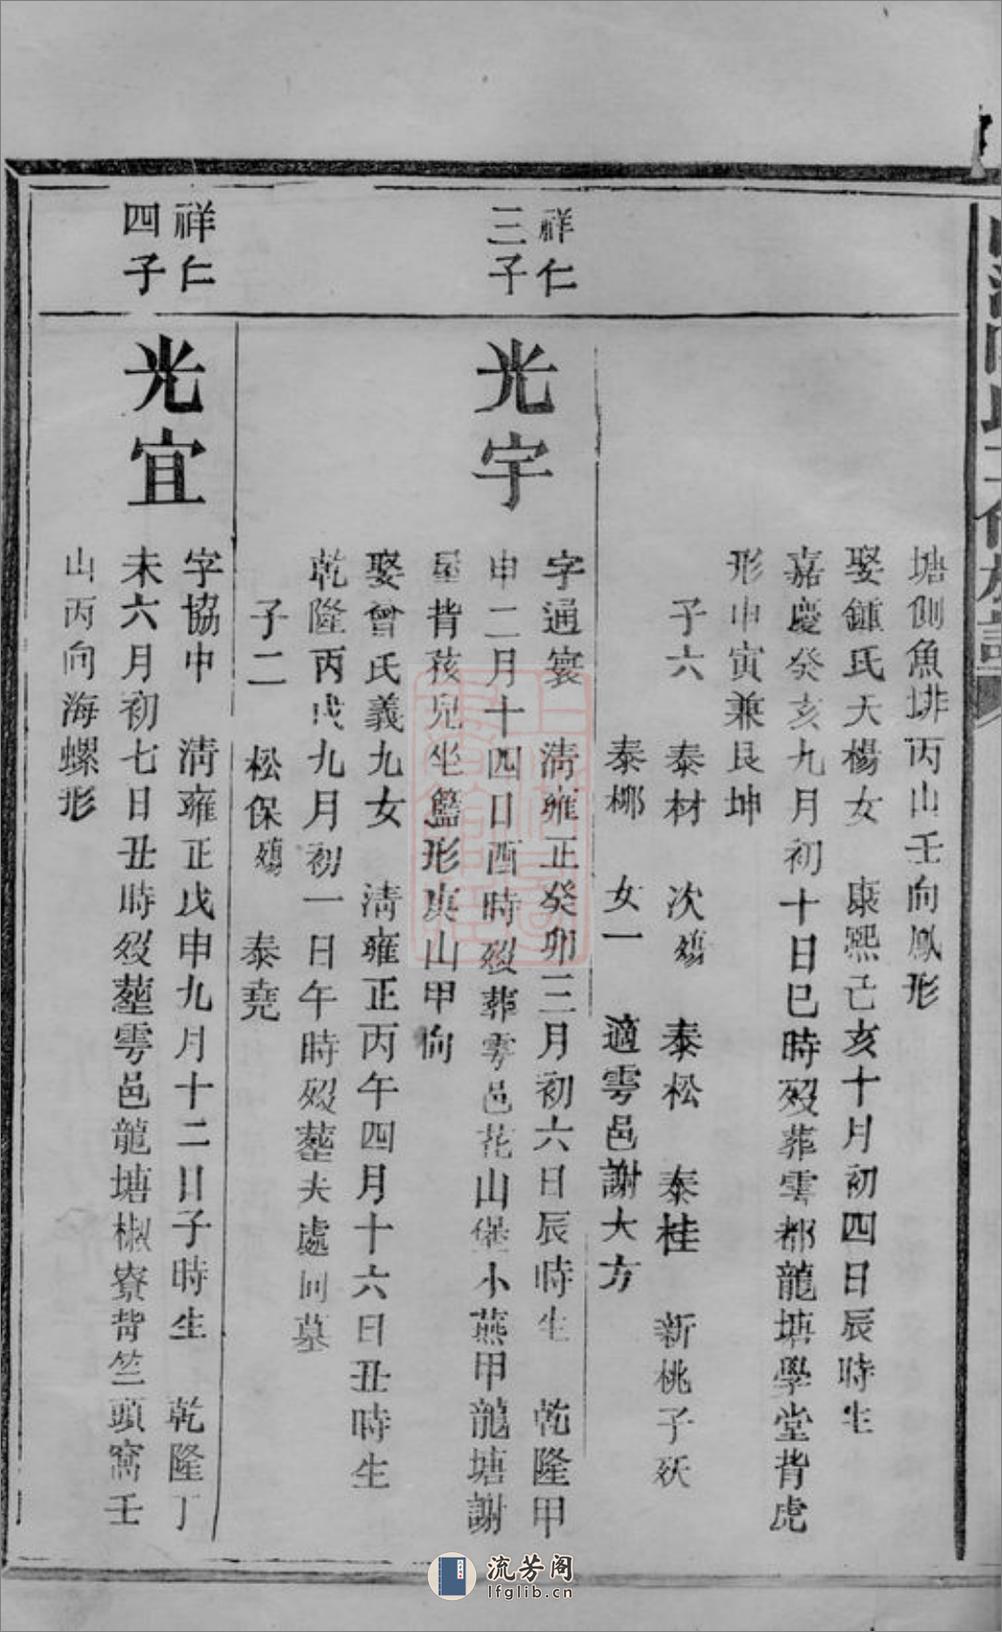 塘側魚坢丙山壬向鳳形
娶鍾氏大楊女 康熙己亥十月初四日辰時生
嘉慶癸亥九月初十日巳時歿葬雩都龍塘學堂背虎
形申寅兼艮坤
子六 泰材 次殤 泰松 泰桂 新桃子殀
泰梛 女一 適雩邑謝大方
祥仁
三子
光宇
字通寰 清雍正癸卯三月初六日辰時生 乾隆甲
申二月十四日酉時歿葬雩邑花山堡小燕甲龍塘謝
屋背孩兒坐籃形庚山甲向
娶曾氏義九女 清雍正丙午四月十六日丑時生
乾隆丙戌九月初一日午時歿塟夫處同墓
子二 松保殤 泰堯
祥仁
四子
光宜
字協中 清雍正戊申九月十二日子時生 乾隆丁
未六月初七日丑時歿塟雩邑龍塘椒寮背竺頭窩壬
山丙向海螺形
流芳阁
lfglib.cn